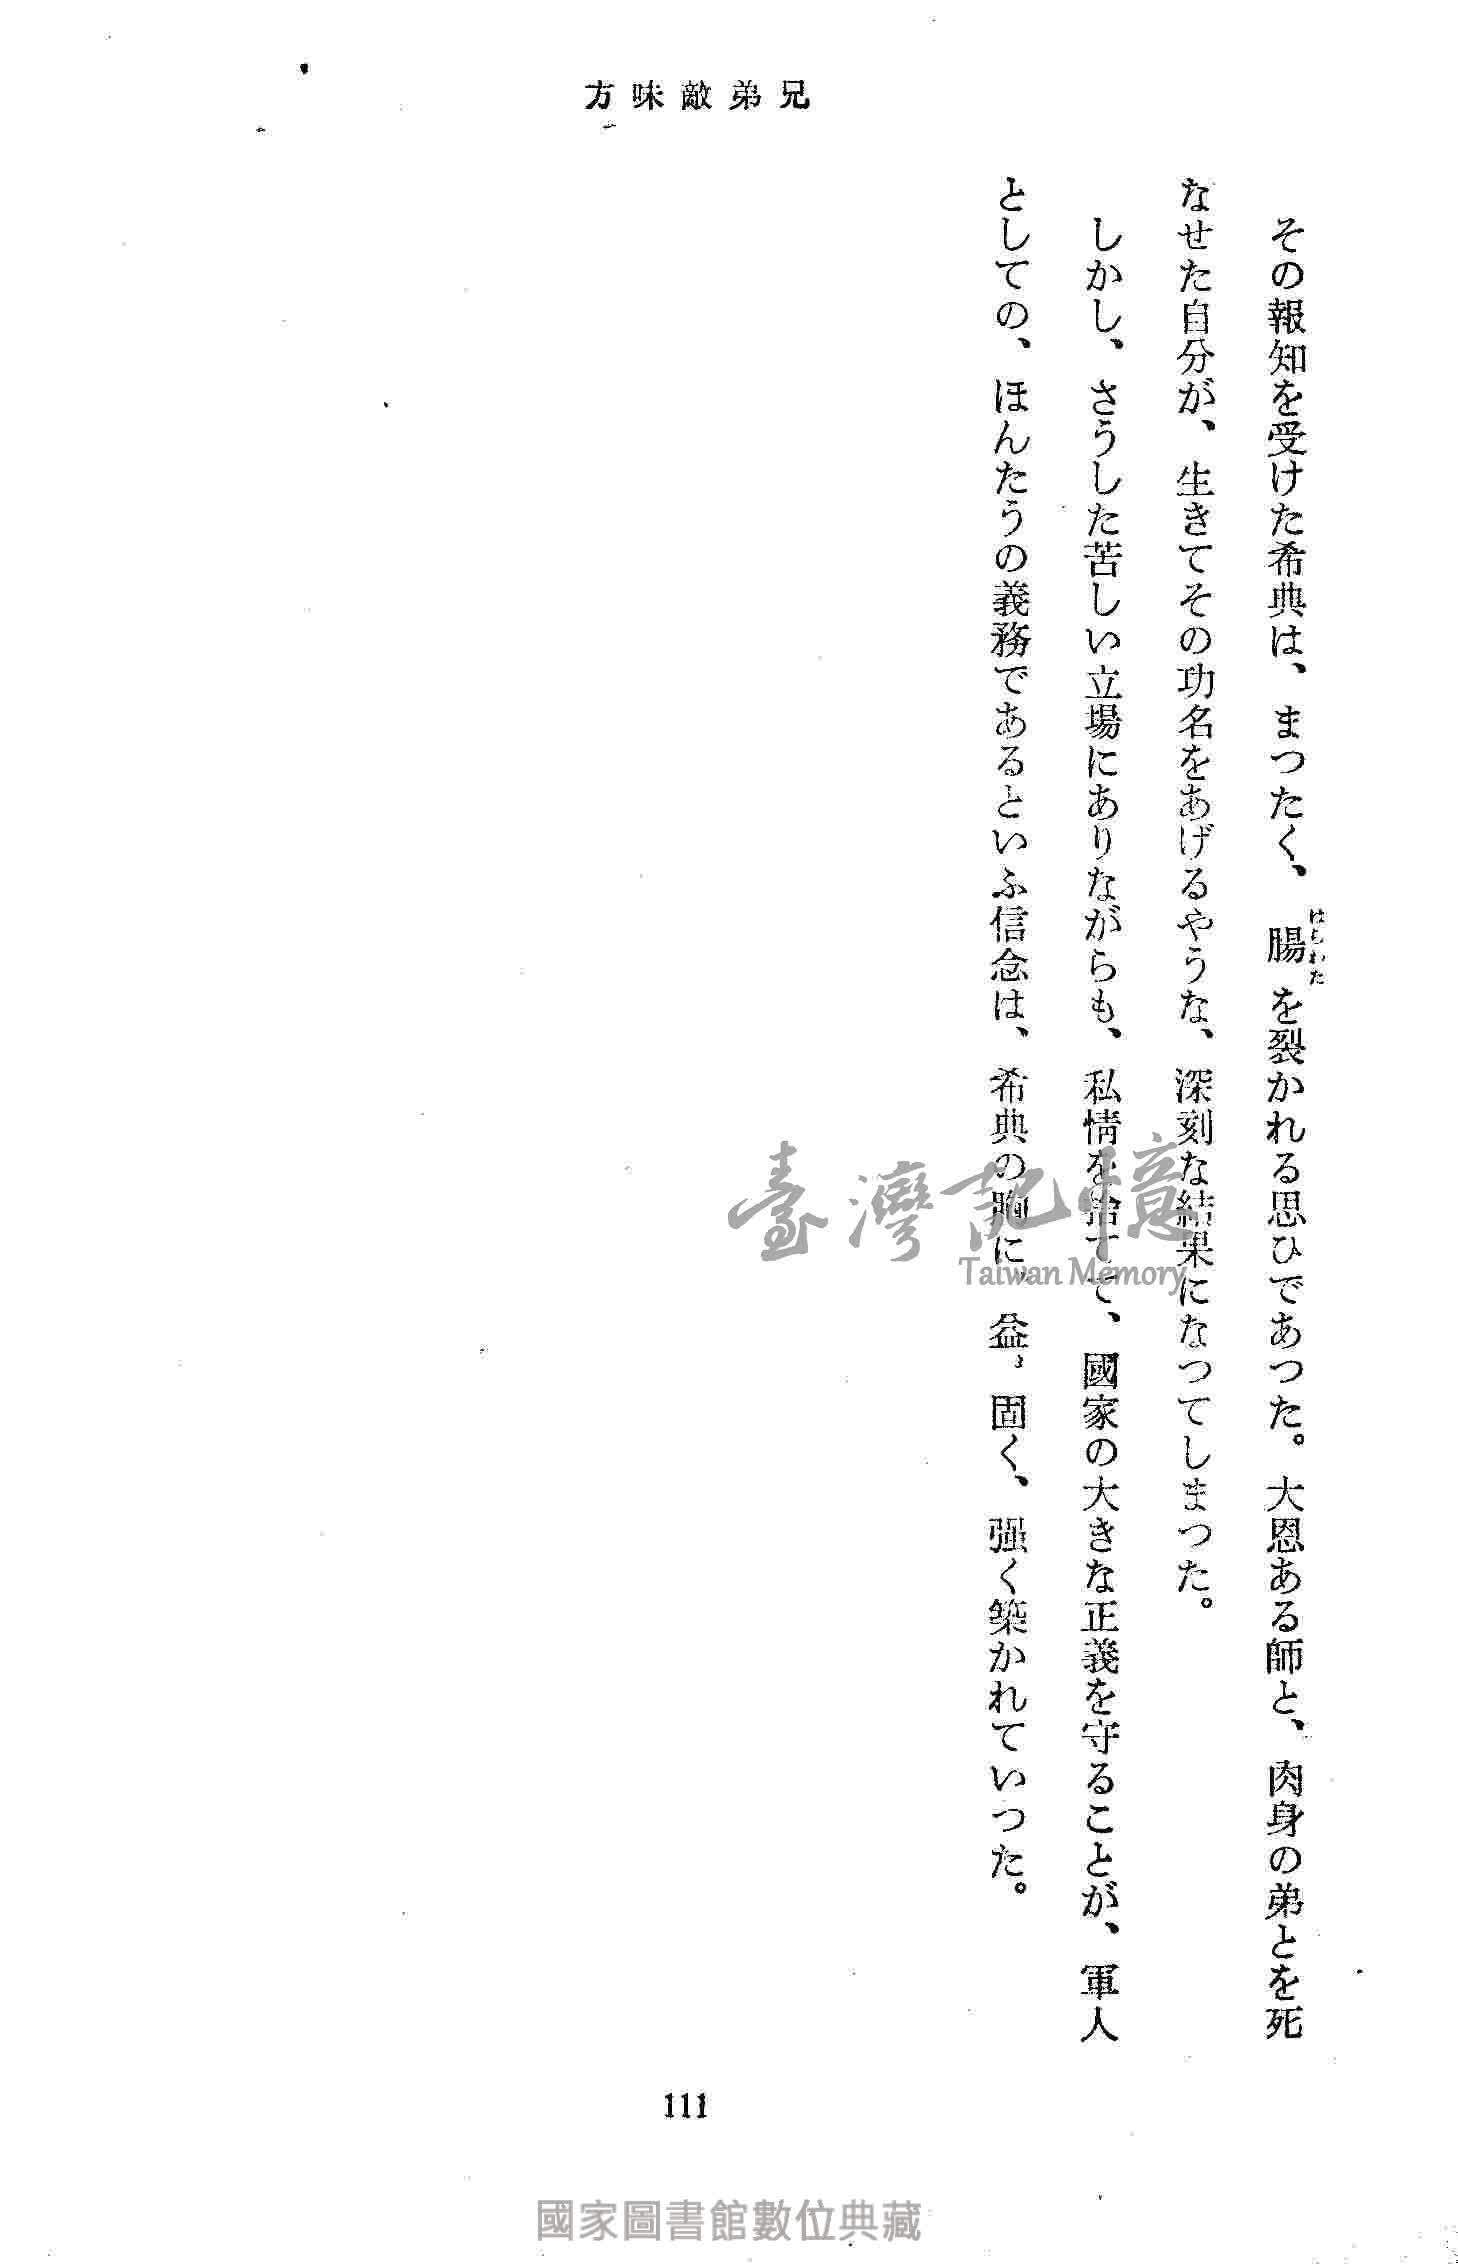 兄弟敵味方
その報知を受けた希典は、まつたく、腸を裂かれる思ひであつた。大恩ある師と、肉身の弟とを死
はらわた
なせた自分が、生きてその功名をあげるやうな、深刻な結果になつてしまつた。
しかし、さうした苦しい立場にありながらも、私情を捨てて、國家の大きな正義を守ることが、軍人
としての、ほんたうの義務であるといふ信念は、希典の胸に、益〻固く、强く築かれていつた。
臺灣記憶
Taiwan Memory
111
國家圖書館數位典藏